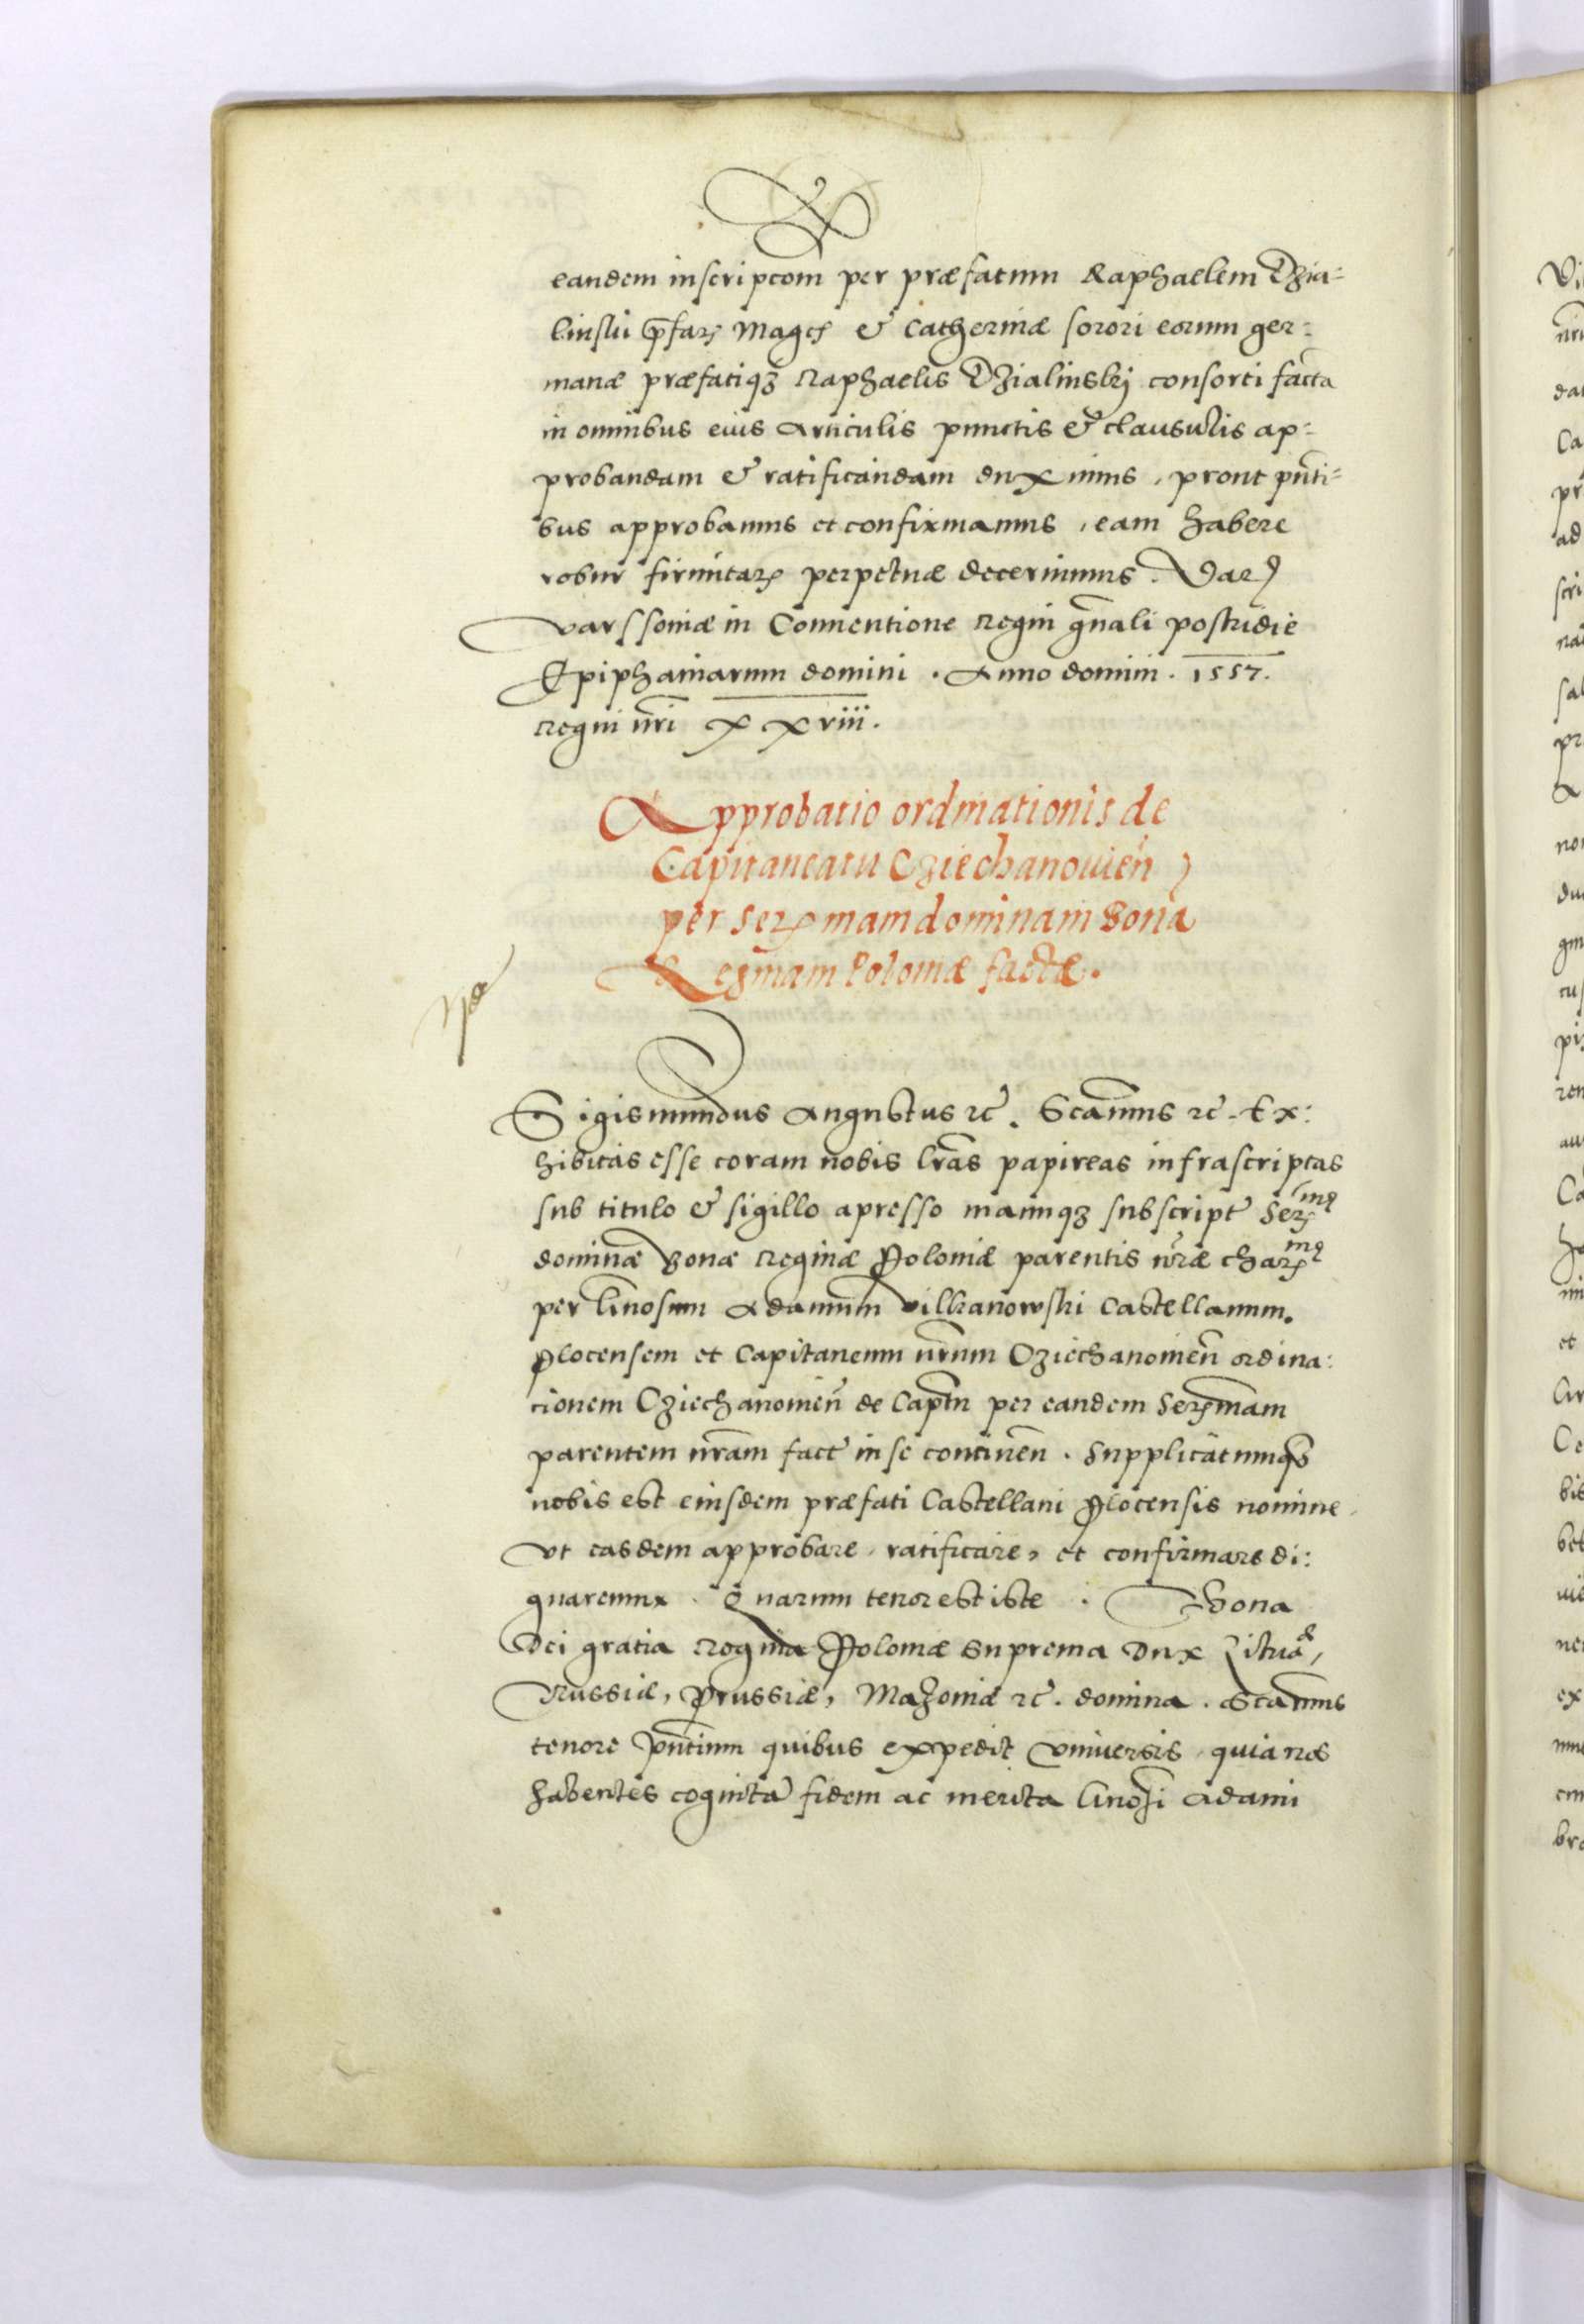 eandem inscripcom per præfatum Raphaelem Dzia=
linski p̄faꝝ Magcꝭ & Catherinæ sorori eorum ger=
manæ præfatiqꝫ Raphaelis Dzialinskij consorti facta
in omnibus eius Articulis punctis & clausulis ap=
probandam & ratificandam duximus, prout pn̄ti=
bus approbamus et confirmamus, eam habere
robur firmitaꝝ perpetuæ decernimus. Daꝝ
Varssoniæ in Conuentione Regni gn̄ali postridie
Epiphaniarum domini. Anno domini. 1557.
Regni nr̄i xxviii.
Approbatio ordinationis de
Capitaneatu Cziechanouien̄
per Serꝫmam dominam Bonā
Reginam Poloniæ factæ.
Sigismundus Augustus ꝛc̄. Scamus ꝛc̄. Ex:
hibitas esse coram nobis lr̄as papireas infrascriptas
sub titulo & sigillo apresso manuqꝫ subscript Serꝫmę
dominæ Bonæ Reginæ Poloniæ parentis nr̄æ charꝫmę
per Gn̄osum Adamum Vilkanowski Castellanum.
Plocensem et Capitaneum nr̄um Cziechanouien̄ ordina:
tionem Cziechanouien̄ de Capt̄u per eandem Serꝫmam
parentem nr̄am fact in se continen̄. Supplicatumqꝫ
nobis est eiusdem præfati Castellani Plocensis nomine
vt easdem approbare, ratificare, et confirmare di:
gnaremur. Quarum tenor est iste. Bona
Dei gratia Regina Poloniæ Suprema Dux Lituæ,
Russiæ, Prussiæ, Mazoniæ ꝛc̄. domina. Scamus
tenore pn̄tium quibus expedit vniuersis, quia nos
habentes cognita fidem ac merita Gn̄osi Adami